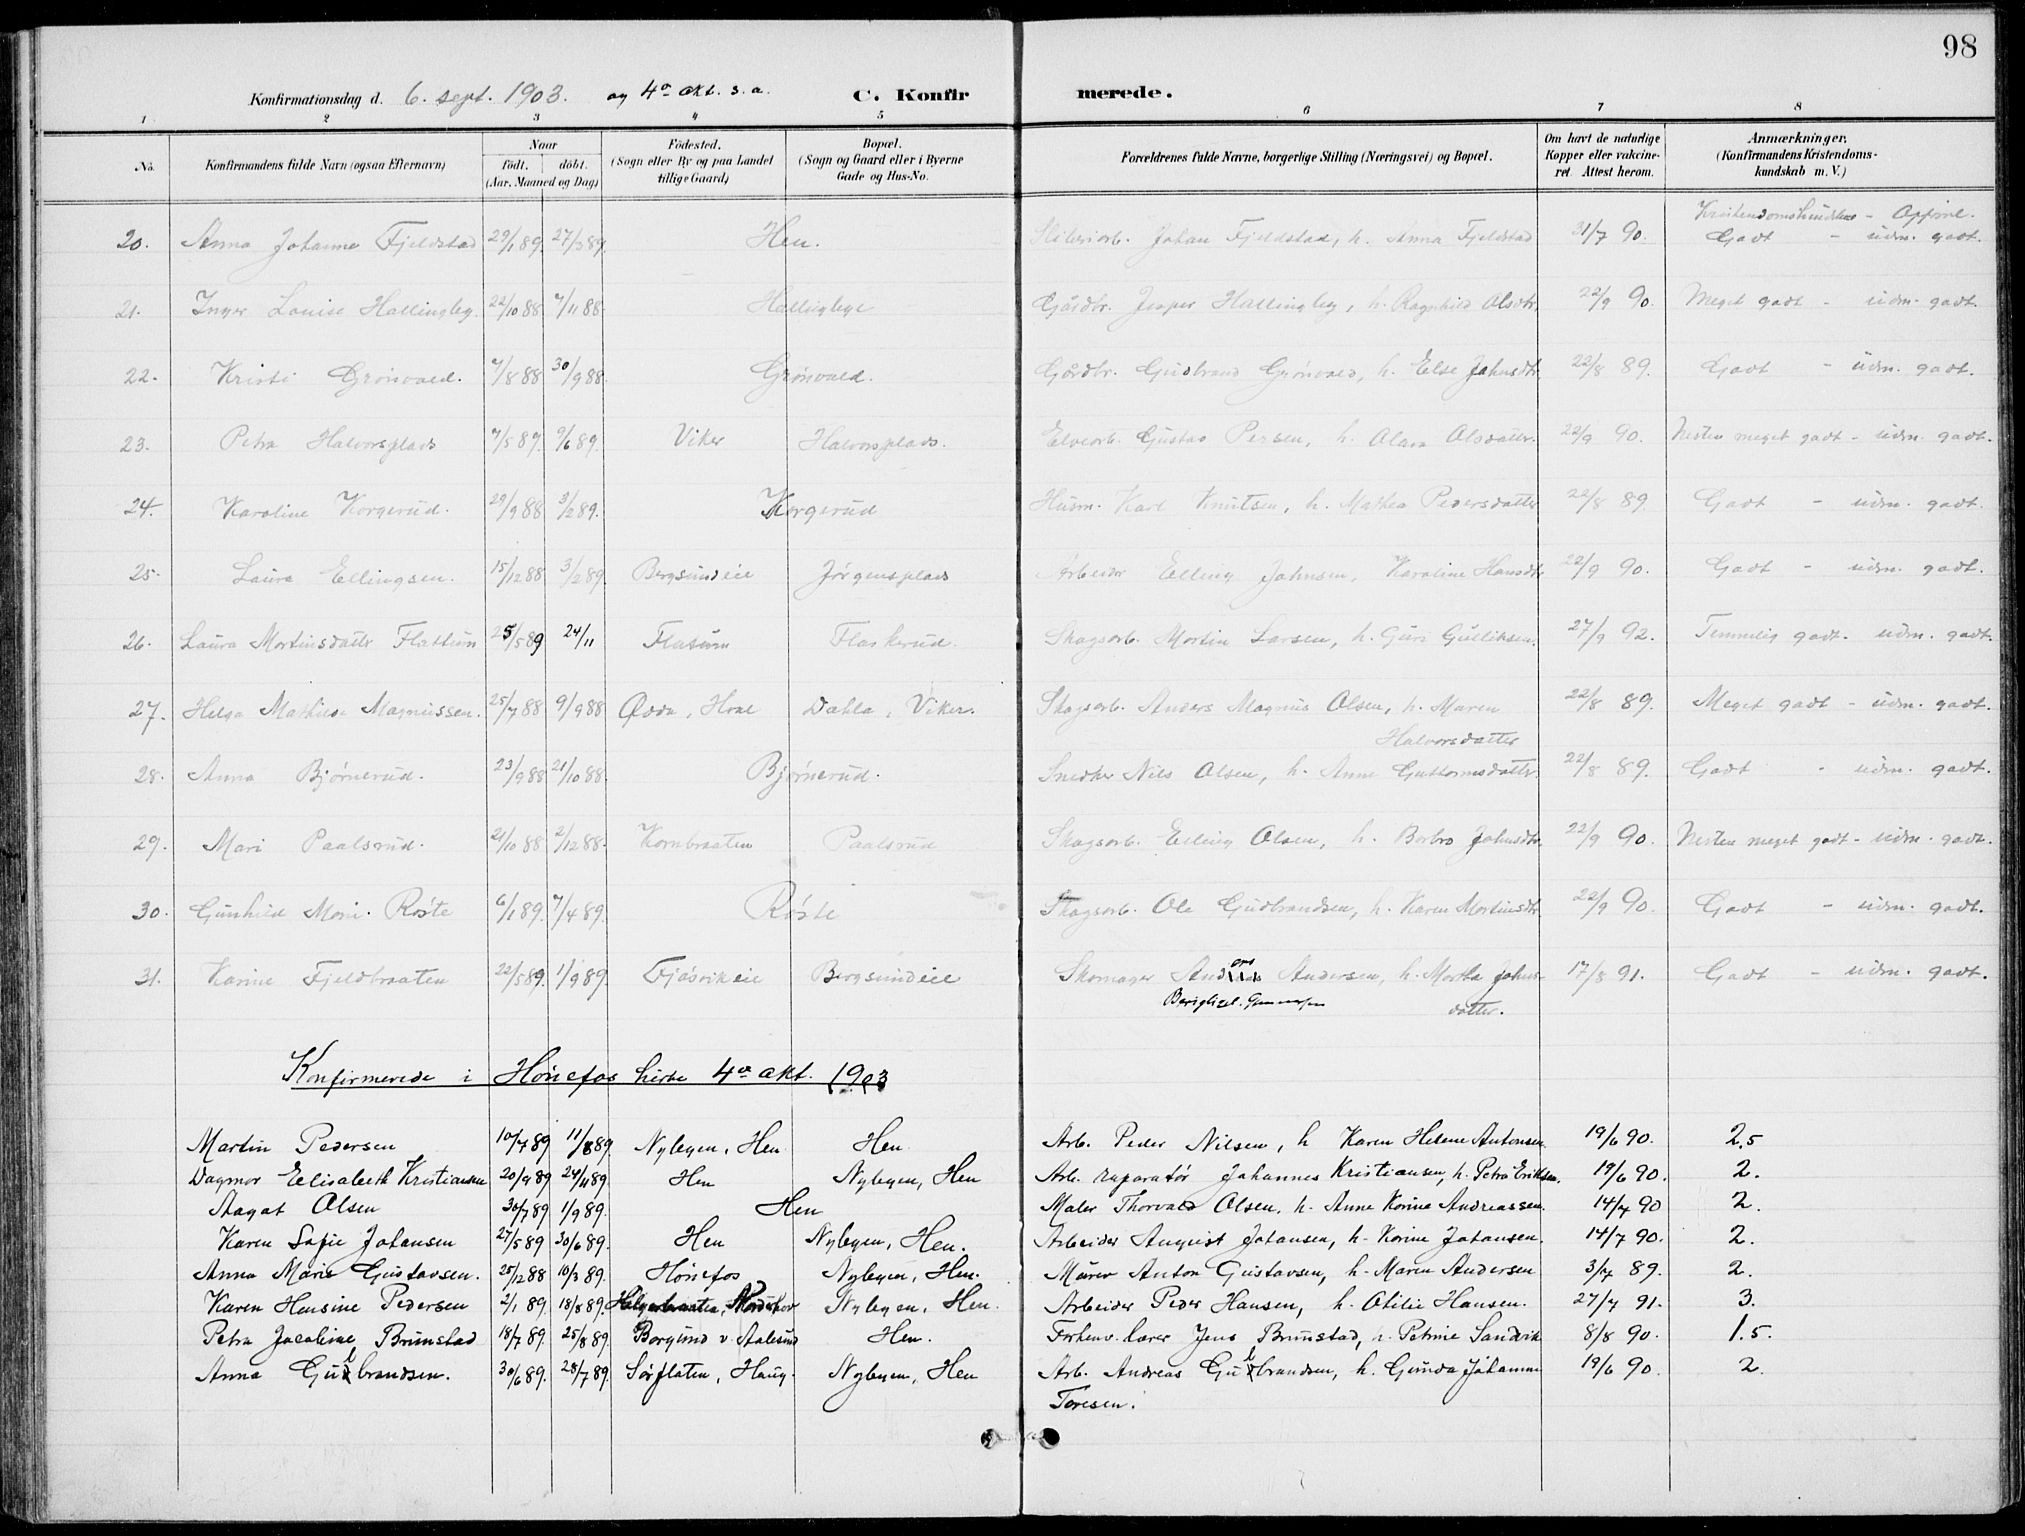 98
Konfirmationsdag d. 6. sept. 1903. og 4de okt. s. a. C. Konfirmerede.
1 2 3 4 5 6 7 8
No. Konfirmandens fulde Navn (ogsaa Efternavn) Naar født. døbt. (Aar, Maaned og Dag) Fødested. (Sogn eller By og paa Landet tillige Gaard) Bopæl. (Sogn og Gaard eller i Byerne Gade og Hus-No. Forældrenes fulde Navne, borgerlige Stilling (Næringsvei) og Bopæl. Om havt de naturlige Kopper eller vakcineret. Attest herom. Anmærkninger. (Konfirmandens Kristendomskundskab m. V.)
Kristendomskundskab - Opførsel.
20. Anna Johanne Fjeldstad 29/1 89. 27/3 89. Hen. Sliberiarb. Johan Fjeldstad, h. Anna Fjeldstad 31/7 90. Godt - udm. godt.
21. Inger Louise Hallingby. 22/10 88 7/11 88. Hallingbye Gårdbr. Jesper Hallingby, h. Ragnhild Olsdtr. 22/9 90. Meget godt - udm. godt.
22. Kristi Grønvold. 7/8 88 30/9 88. Grønvold. Gårdbr. Gudbrand Grønvold, h. Else Johnsdtr. 22/8 89. Godt - udm. godt.
23. Petra Halvorsplads 7/5 89 9/6 89. Viker Halvorsplads. Elvearb. Gustav Persen, h. Olava Olsdatter. 22/9 90. Nesten meget godt - udm. godt.
24. Karoline Korgerud. 29/9 88 3/2 89. Korgerud Husm. Karl Knutsen, h. Mathea Pedersdatter 22/8 89. Godt - udm. godt.
25. Laura Ellingsen. 15/12 88 3/2 89. Bergsundeie Jørgensplads Arbeider Elling Johnsen, Karoline Hansdtr. 22/9 90. Godt - udm. godt.
26. Laura Martinsdatter Flattum 25/5 89 24/11 Flasum Flaskerud. Skogsarb. Martin Larsen, h. Guri Gulliksen. 27/9 92. Temmelig godt. udm. godt.
27. Helga Mathilde Magnussen. 25/7 88 9/9 88 Odda, Hole Dahla, Viker. Skogsarb. Anders Magnus Olsen, h. Maren 22/8 89. Meget godt - udm. godt.
Halvorsdatter
28. Anna Bjørnerud. 23/9 88 21/10 88. Bjørnerud. Snedker Nils Olsen, h. Anne Guttormsdatter. 22/8 89. Godt - udm. godt.
29. Mari Paalsrud. 21/10 88 2/12 88. Kornbraaten Paalsrud Skogsarb. Elling Olsen, h. Barbro Johnsdtr. 22/9 90. Nesten meget godt - udm. godt.
30. Gunhild Marie Røste 6/1 89. 7/4 89. Røste Skogsarb. Ole Gudbrandsen, h. Karen Martinsdtr. 22/9 90. Godt - udm. godt.
31. Karine Fjeldbraaten 22/5 89. 1/9 89. Fjøsvikeie Bergsundeie Skomager Anders Andersen, h. Martha Johns- 17/8 91. Godt - udm. godt.
datter.
Konfirmerede i Hønefos kirke 4de okt. 1903
Martin Pedersen 10/7 89 11/8 89. Nybyen, Hen Hen Arb. Peder Nilsen, h Karen Helene Antonsen 19/6 90. 2.5
Dagmor Elisabeth Kristiansen 20/9 89 24/11 89 Hen Nybyen, Hen Arb. reparatør Johannes Kristiansen, h. Petra Eriksen. 19/6 90. 2.
Aagot Olsen 30/7 89 1/9 89. Hen Maler Thorvald Olsen, h. Anne Korine Andreassen. 14/7 90 2.
Karen Sofie Johansen 27/5 89 30/6 89. Hen Nybyen, Hen. Arbeider August Johansen, h. Korine Johansen. 14/7 90. 2.
Anna Marie Gustavsen. 25/12 88 10/3 89. Hønefos Nybyen, Hen. Murer Anton Gustavsen, h. Maren Andersen 3/7 89. 2.
Karen Hansine Pedersen 2/1 89. 18/8 89. Nybyen, Hen. Arbeider Peder Hansen, h. Otilie Hansen. 27/7 91. 3.
Petra Jacobine Brunstad 18/7 89. 25/8 89. Borgund v. Aalesund Hen. Forhenv. lærer Jens Brunstad, h. Petrine Sandvik 8/8 90. 1.5.
Anna Gulbrandsen. 30/6 89. 28/7 89. Sørflaten, Haug. Nybyen, Hen Arb. Andreas Gulbrandsen, h. Gunda Johanne 19/6 90. 2.
Toresen.